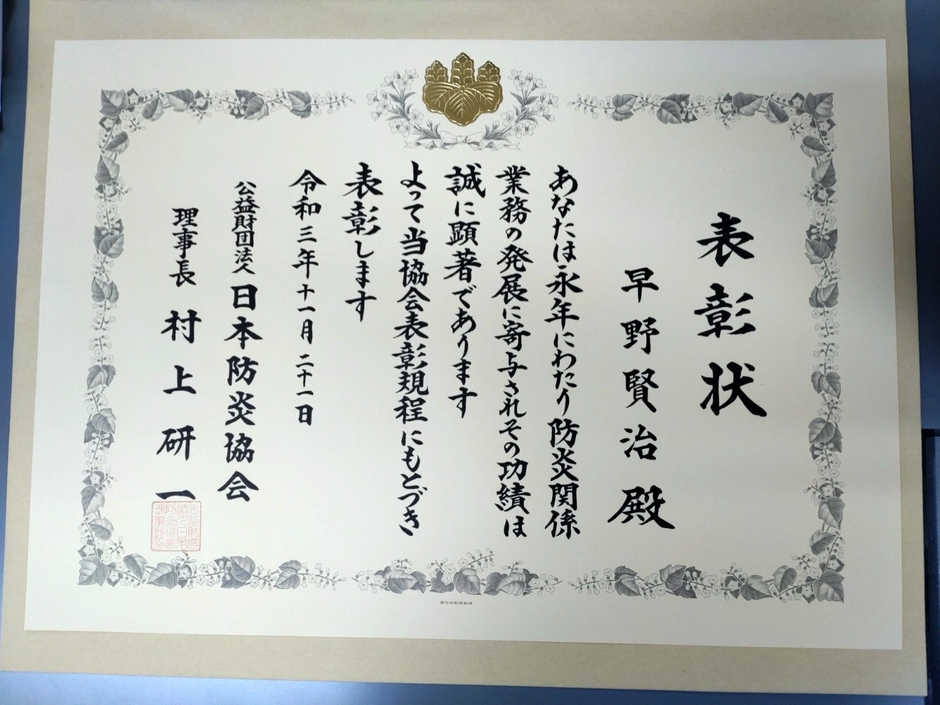 表彰状
早野賢治殿
あなたは永年にわたり防炎関係
業務の発展に寄与されその功績は
誠に顕著であります
よって当協会表彰規程にもとづき
表彰します
令和三年十一月二十一日
公益財団法人日本防炎協会
理事長村上研一